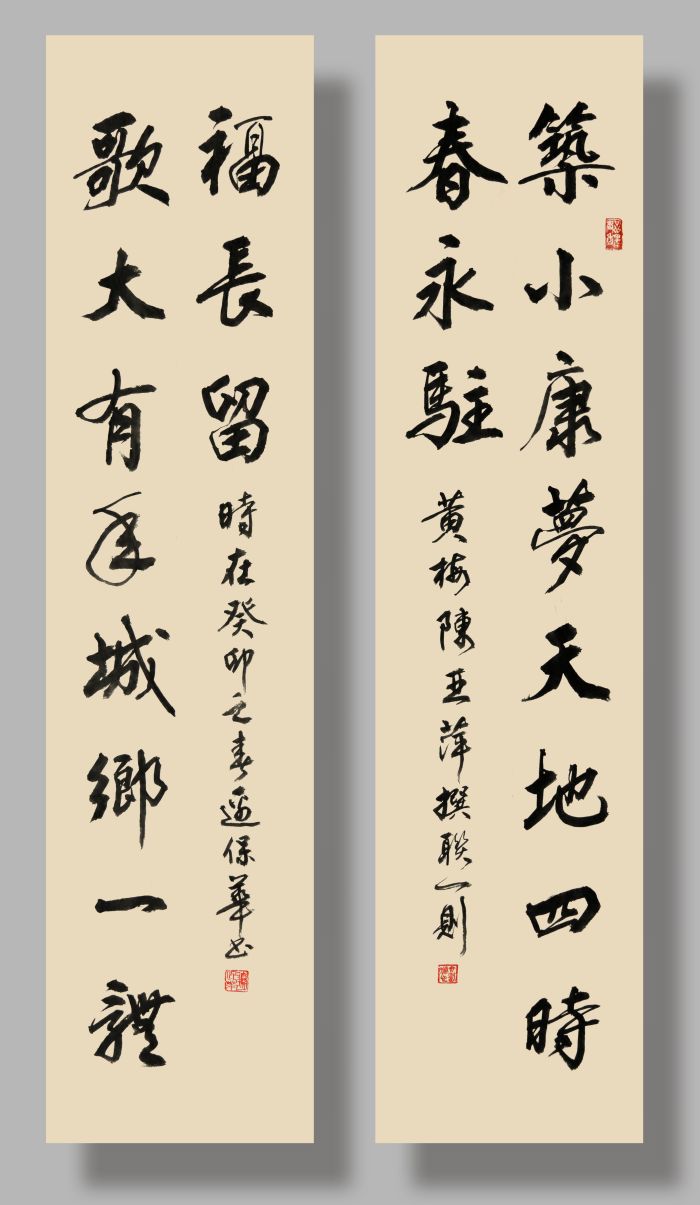 築小康夢天地四時
春永駐
黃梅陳亞萍撰聯一則
歌大有年城鄉一體
福長留
時在癸卯之春邊保華書